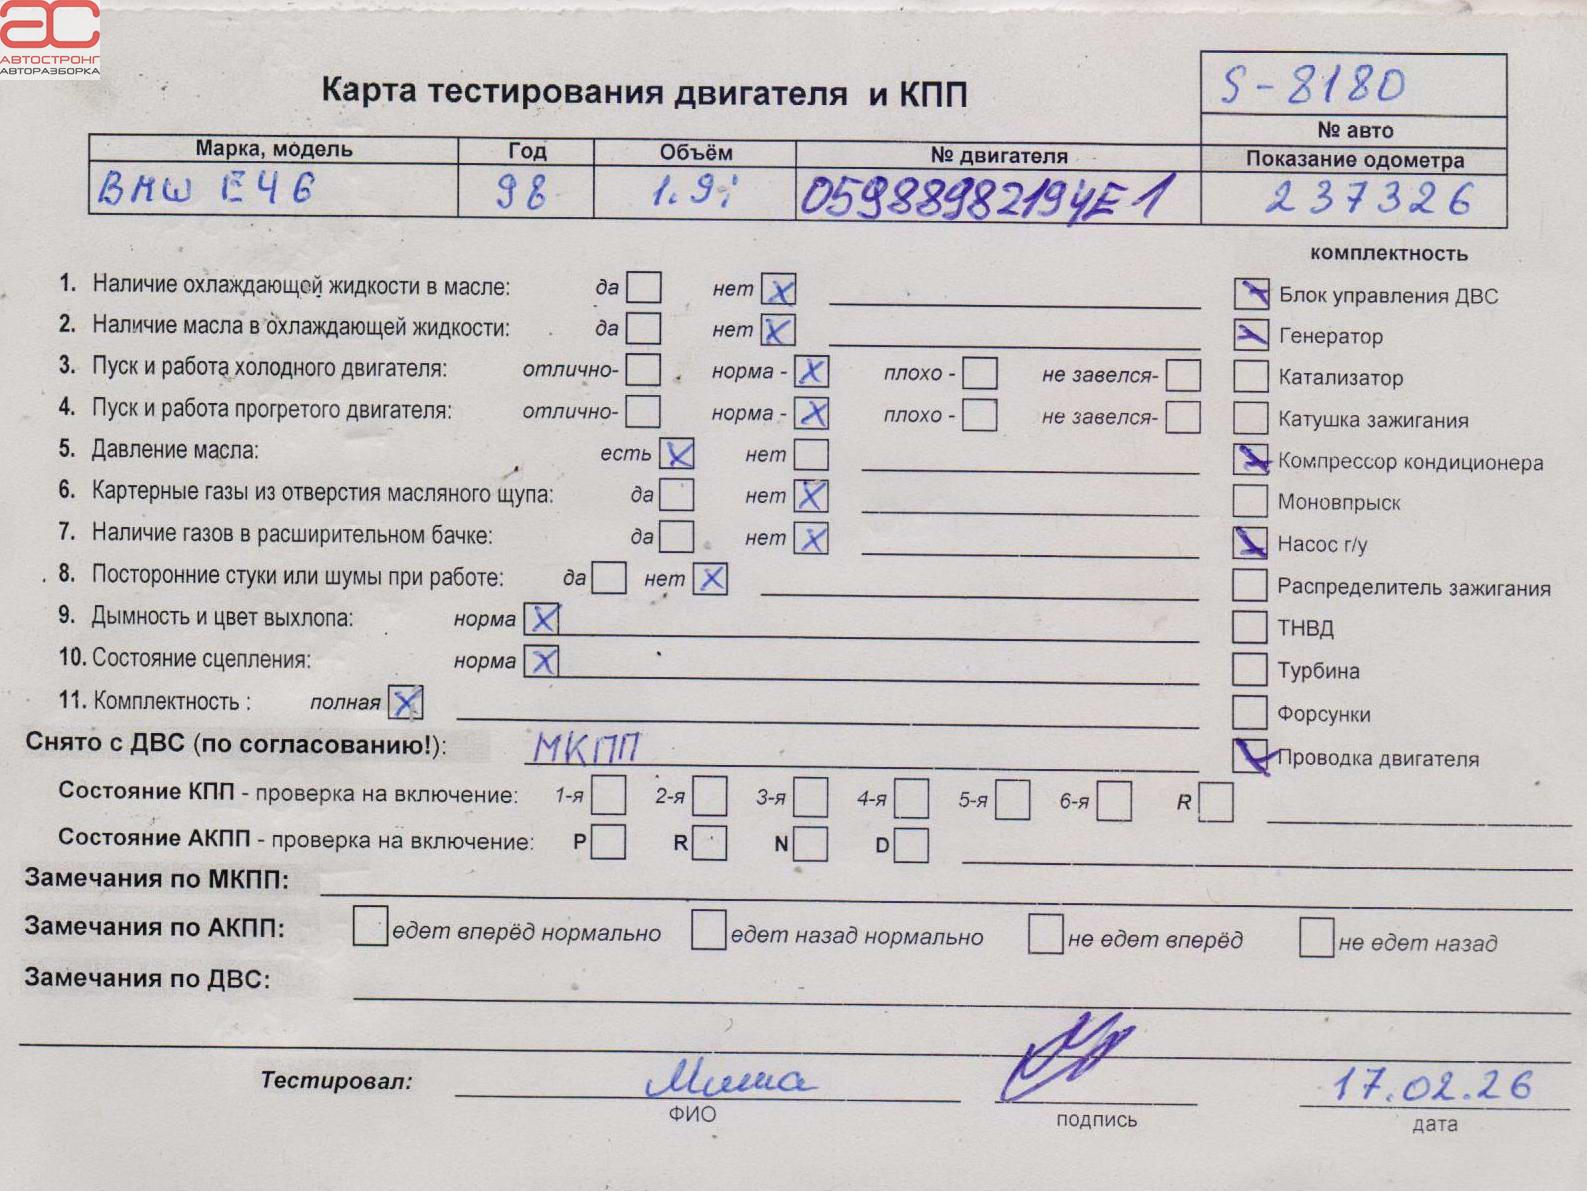 АС
АВТОСТРОНГ
АВТОРАЗБОРКА
Карта тестирования двигателя и КПП
S-8180
№ авто
Марка, модель Год Объём № двигателя Показание одометра
BMW E46 98 1.9i 05988982194E1 237326
комплектность
1. Наличие охлаждающей жидкости в масле: да нет X
Блок управления ДВС
2. Наличие масла в охлаждающей жидкости: да нет X
Генератор
3. Пуск и работа холодного двигателя: отлично- норма - X плохо - не завелся-
Катализатор
4. Пуск и работа прогретого двигателя: отлично- норма - X плохо - не завелся-
Катушка зажигания
5. Давление масла: есть X нет
Компрессор кондиционера
6. Картерные газы из отверстия масляного щупа: да нет X
Моновпрыск
7. Наличие газов в расширительном бачке: да нет X
Насос г/у
8. Посторонние стуки или шумы при работе: да нет X
Распределитель зажигания
9. Дымность и цвет выхлопа: норма X
ТНВД
10. Состояние сцепления: норма X
Турбина
11. Комплектность : полная X
Форсунки
Снято с ДВС (по согласованию!): МКПП
Проводка двигателя
Состояние КПП - проверка на включение: 1-я 2-я 3-я 4-я 5-я 6-я R
Состояние АКПП - проверка на включение: P R N D
Замечания по МКПП:
Замечания по АКПП: едет вперёд нормально едет назад нормально не едет вперёд не едет назад
Замечания по ДВС:
Тестировал: Миша 17.02.26
ФИО подпись дата